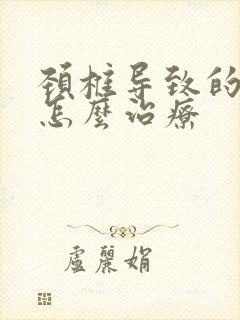 颈椎导致的
怎麼治療
盧麗娟